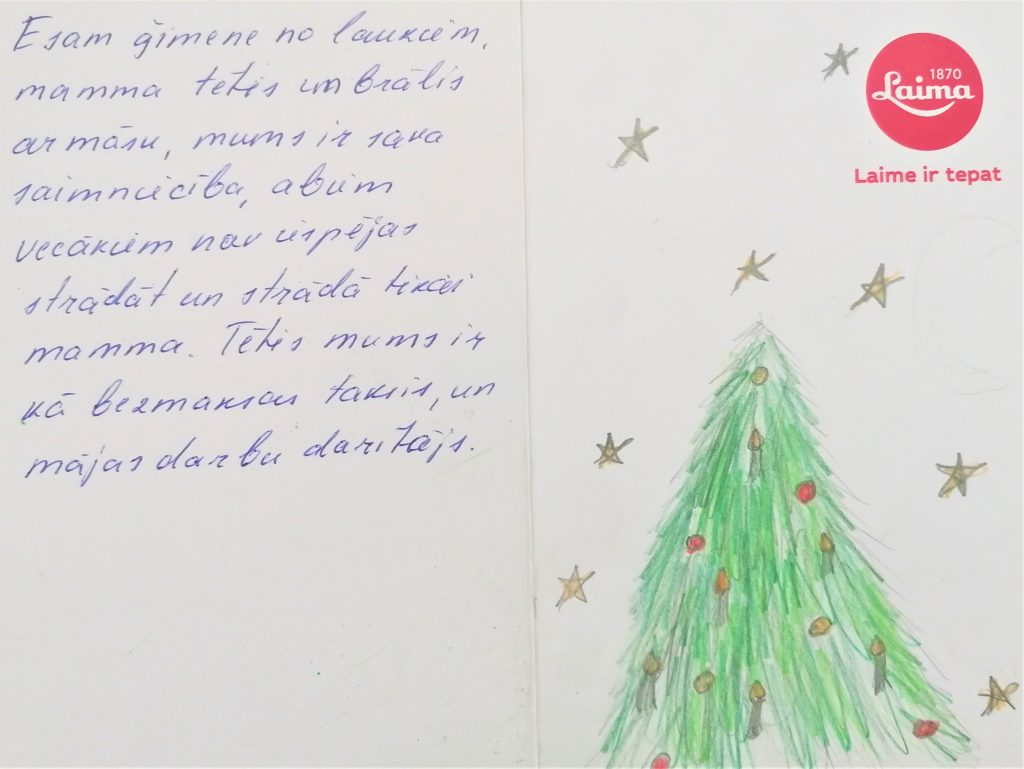 Esam ģimene no laukiem,
mamma tētis un brālis
ar māsu, mums ir sava
saimniecība, abiem
vecākiem nav iespējas
strādāt un strādā tikai
mamma. Tētis mums ir
kā bezmaksas taksis, un
mājas darbu darītājs.
1870
Laima
Laime ir tepat